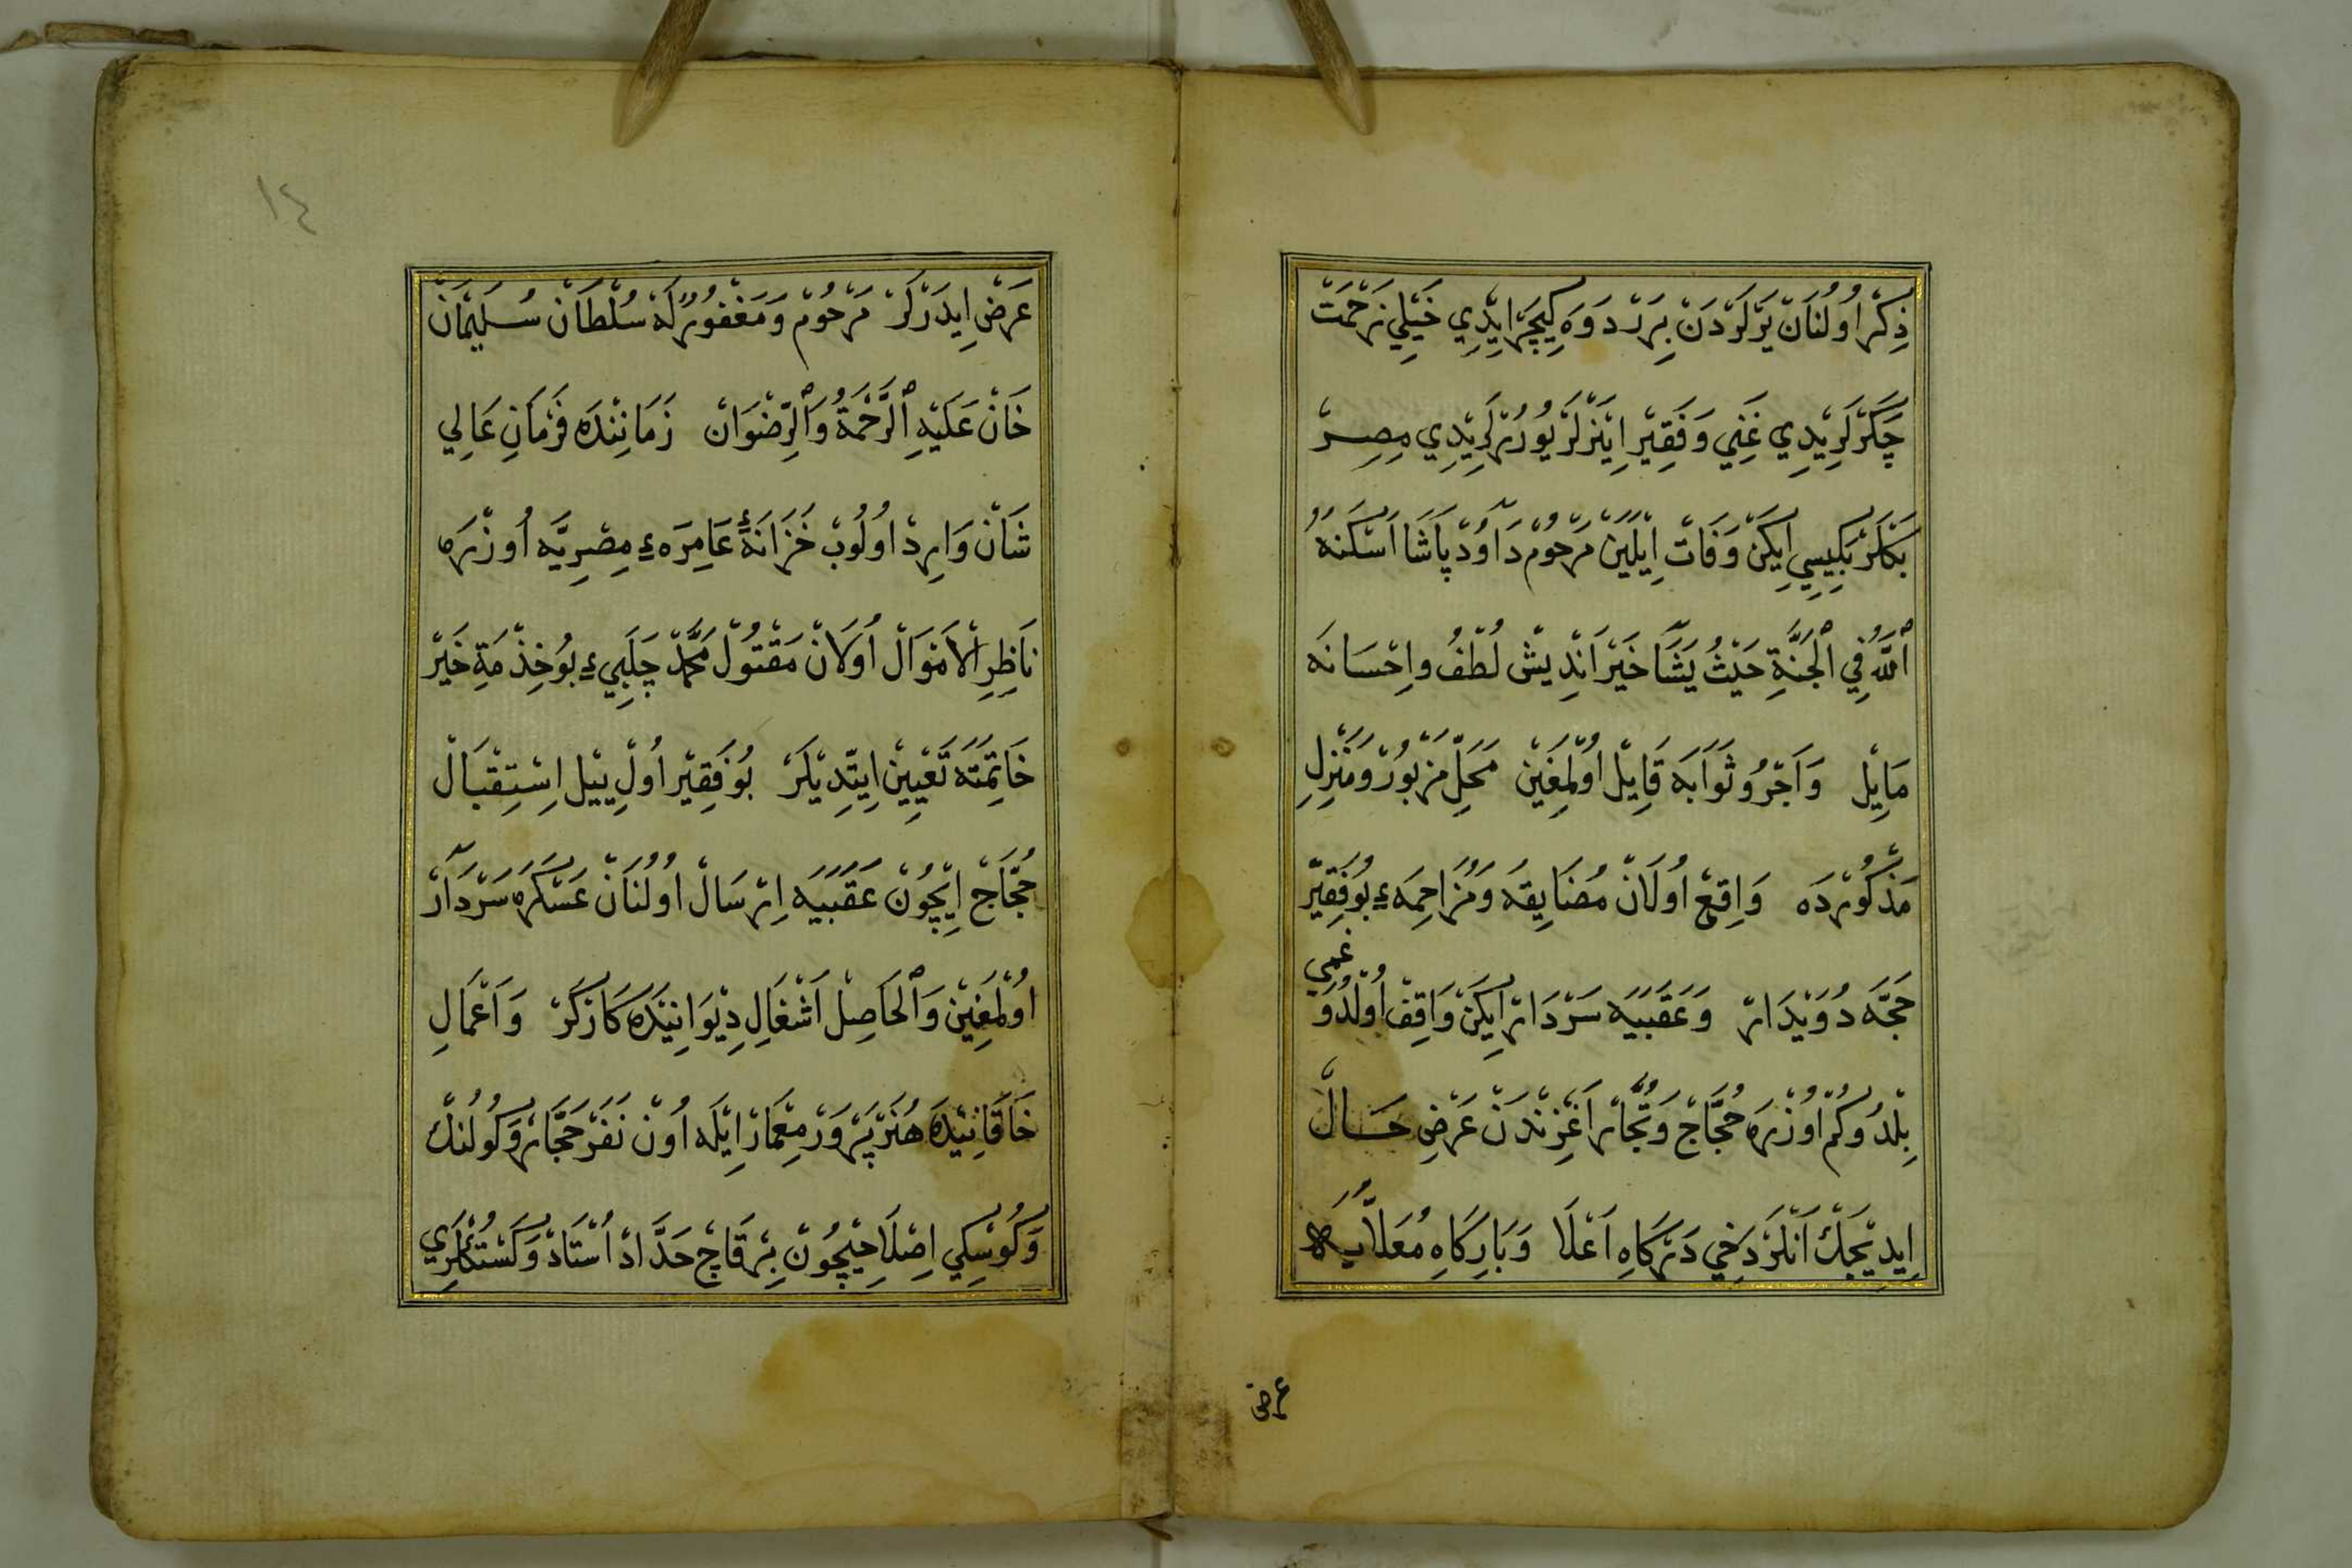 ذِكْرْ اُولُنَانْ يَرْلَرْدَنْ بِرَرْ دَوَه كِيچَرْ اِيدِي خَيْلِي زَحْمَتْ
چَكَرْلَرِيْدِي غَنِي وَفَقِيْرْ اِيَنْرْلَرْ يُورُرْلَرِيْدِي مِصِرْ
بَكْلَرْبَكِيسِي اِيكَنْ وَفَاتْ اِيْلَيَنْ مَرْحُومْ دَاوُدْ پَاشَا اَسْكَنَهُ
ٱللّٰهُ فِي ٱلْجَنَّةِ حَيْثُ يَشَآ خَيْرْ اَنْدِيشْ لُطْفُ واِحْسَانَه
مَايِلْ وَاَجْرُ وثَوَابَه قَايِلْ اُولْمَغِينْ مَحَلِّ مَزْبُورْ وَمَنْزِلِ
مَذْكُورْدَه وَاقِعْ اُولَانْ مُضَايِقَه وَمُزَاحِمَهءِ بُو فَقِيْرْ
غمي
حَجَّه دُوَيْدَارْ وَعَقَبَيَه سَرْدَارْ اِيكَنْ وَاقِفْ اُولْدُوُ
بِلْدُوكُمْ اُوزْرَه حُجَّاجْ وَتُجَّارْ اَغْزِنْدَنْ عَرْضِ حَالْ
اِيدِيْجَكْ اَنْلَرْ دَخِي دَرْكَاهِ اَعْلَا وَبَارِكَاهِ مُعَلَّايَه
عرض
١٤
عَرْضْ اِيدَرْلَرْ مَرْحُومْ وَمَغْفُورٌ لَهْ سُلْطَانْ سُلَيْمَانْ
خَانْ عَلَيْهِ ٱلرَّحْمَةُ وَٱلرِّضْوَانْ زَمَانِنْدَه فَرْمَانِ عَالِي
شَانْ وَارِدْ اُولُوبْ خَزَانَهءِ عَامِرَهءِ مِصْرِيَّه اُوزْرَه
نَاظِرِ الْاَمْوَالْ اُولَانْ مَقْتُولْ مُحَمَّدْ چَلَبِيءِ بُو خِذْمَةِ خَيْرْ
خَاتِمَتَه تَعْيِينْ اِيتْدِيلَرْ بُو فَقِيْر اُولْ ييِلْ اِسْتِقْبَالْ
حُجَّاجْ اِيچُونْ عَقَبَيَه اِرْسَالْ اُولُنَانْ عَسْكَرَه سَرْدَارْ
اُولْمَغِينْ وَٱلْحَاصِلْ اَشْغَالِ دِيْوَانِيَدَه كَارْكَرْ وَاَعْمَالِ
خَاقَانِيَدَه هُنَرْپَرْوَرْ مِعْمَارْ اِيْلَه اُونْ نَفَرْ حَجَّارْ وَكُولُنْكْ
وَكُوسْكِي اِصْلَاحِيچُونْ بِرْ قَاچْ حَدَّادْ اُسْتَادْ وَكَسْتُكْلَرِي